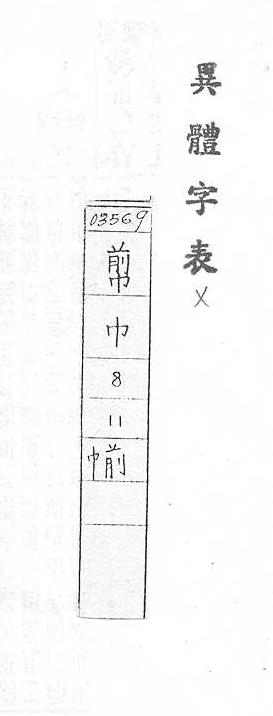 異體字表
X
03569
巾
8
11